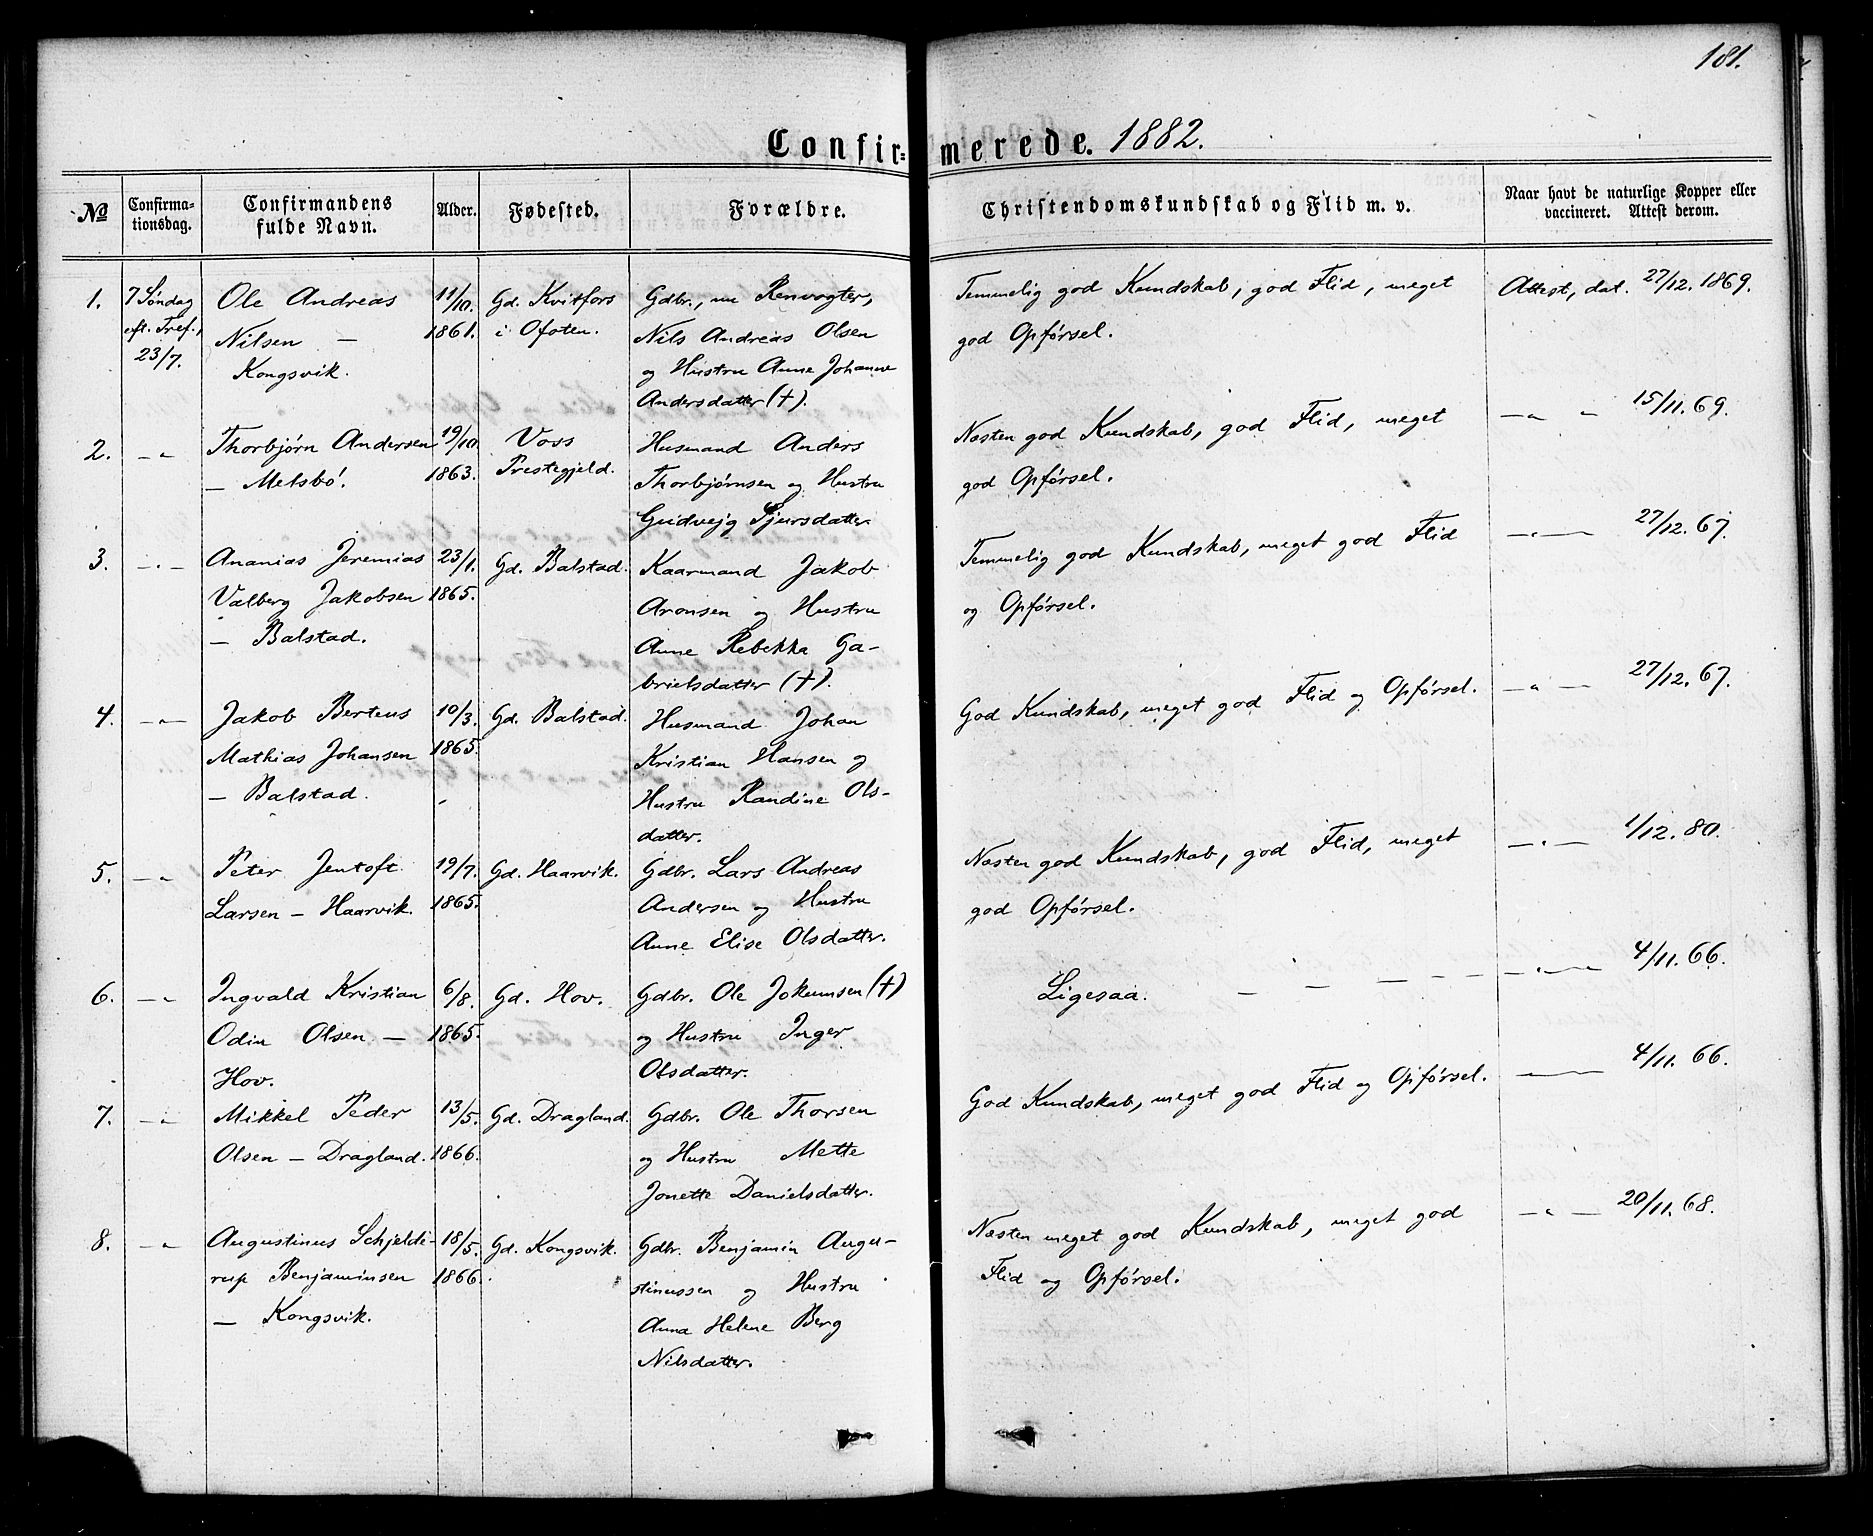 181.
Confir= merede. 1882.
No
Confirma-
tionsdag.
Confirmandens
fulde Navn.
Alder.
Fødested.
Forældre.
Christendomskundskab og Flid m. v.
Naar havt de naturlige Kopper eller
vaccineret. Attest derom.
1. 7 Søndag
eft. Tref.,
23/7.
Ole Andreas
Nilsen –
Kongsvik.
11/10.
1861.
Gd. Kvitfors
i Ofoten.
Gdbr., nu Renvogter,
Nils Andreas Olsen
og Hustru Anne Johanne
Andersdatter (†).
Temmelig god Kundskab, god Flid, meget
god Opførsel.
Attest, dat. 27/12. 1869.
2. – „
Thorbjørn Andersen
– Melsbó.
19/10.
1863.
Voss
Prestegjeld.
Husmand Anders
Thorbjørnsen og Hustru
Gudvejg Sjursdatter
Næsten god Kundskab, god Flid, meget
god Opførsel.
– „ – 15/11. 69.
3. – „ –
Ananias Jeremias
Valberg Jakobsen
– Balstad.
23/1.
1865.
Gd. Balstad.
Kaarmand Jakob
Aronsen og Hustru
Anne Rebekka Ga-
brielsdatter (†).
Temmelig god Kundskab, meget god Flid
og Opførsel.
– „ – 27/12. 67.
4. – „ –
Jakob Berteus
Mathias Johansen
– Balstad.
10/3.
1865.
Gd. Balstad.
Husmand Johan
Kristian Hansen og
Hustru Randine Ols-
datter.
God Kundskab, meget god Flid og Opførsel.
– „ – 27/12. 67.
5. – „
Peter Jentoft
Larsen – Haarvik.
19/7.
1865.
Gd. Haarvik.
Gdbr. Lars Andreas
Andersen og Hustru
Anne Elise Olsdatter.
Næsten god Kundskab, god Flid, meget
god Opførsel.
– „ – 1/12. 80.
6. – „
Ingvald Kristian
Odin Olsen –
Hov.
6/8.
1865.
Gd. Hov.
Gdbr. Ole Jokumsen (†)
og Hustru Inger
Olsdatter.
Ligesaa. – – – – –
– „ – 4/11. 66.
7. – „
Mikkel Peder
Olsen – Dragland.
13/5.
1866.
Gd. Dragland.
Gdbr. Ole Thorsen
og Hustru Mette
Jonette Danielsdatter.
God Kundskab, meget god Flid og Opførsel.
– 4/11. 66.
8. – „
Augustinus Schjelde-
rup Benjaminsen
– Kongsvik.
18/5.
1866.
Gd. Kongsvik.
Gdbr. Benjamin Augu-
stinussen og Hustru
Anna Helene Berg
Nilsdatter.
Næsten meget god Kundskab, meget god
Flid og Opførsel.
– „ – 20/11. 68.